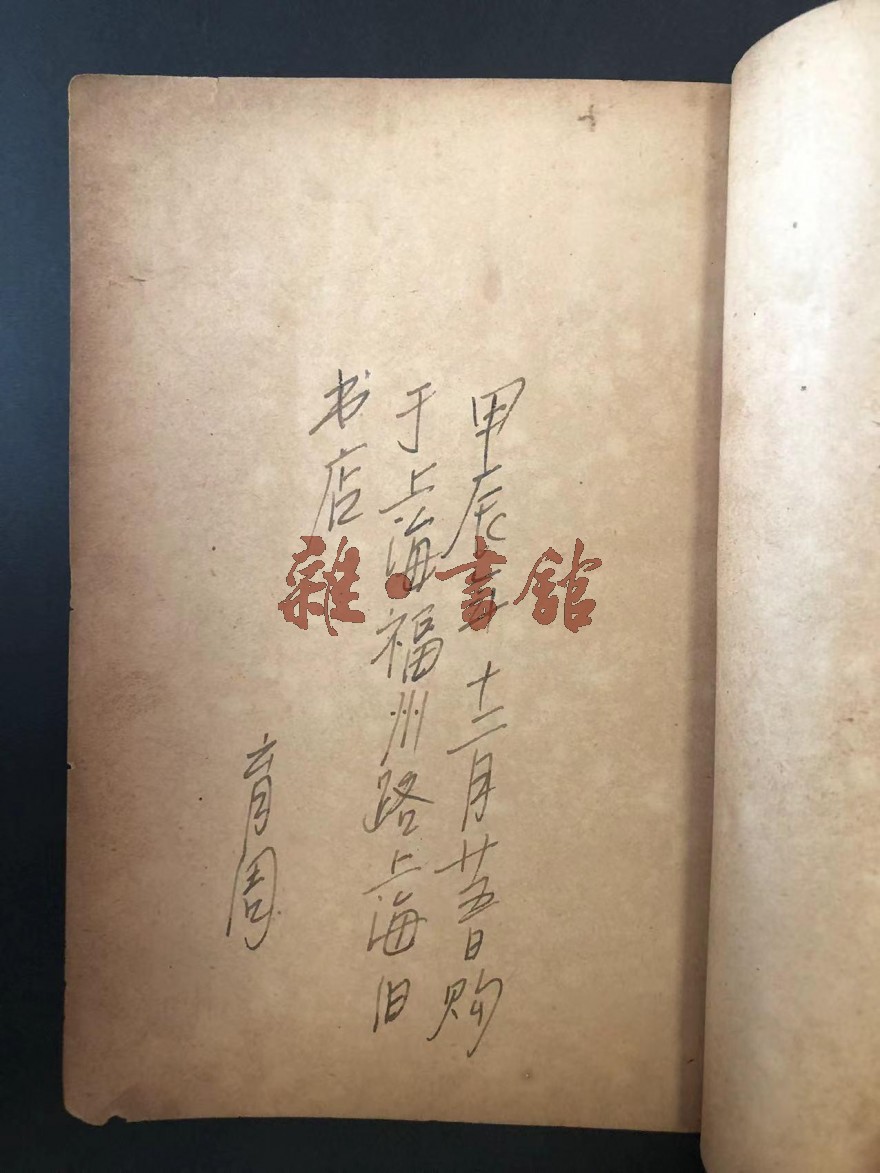 甲辰年十二月廿五日购
于上海福州路上海旧
书店
育周
雜·書館